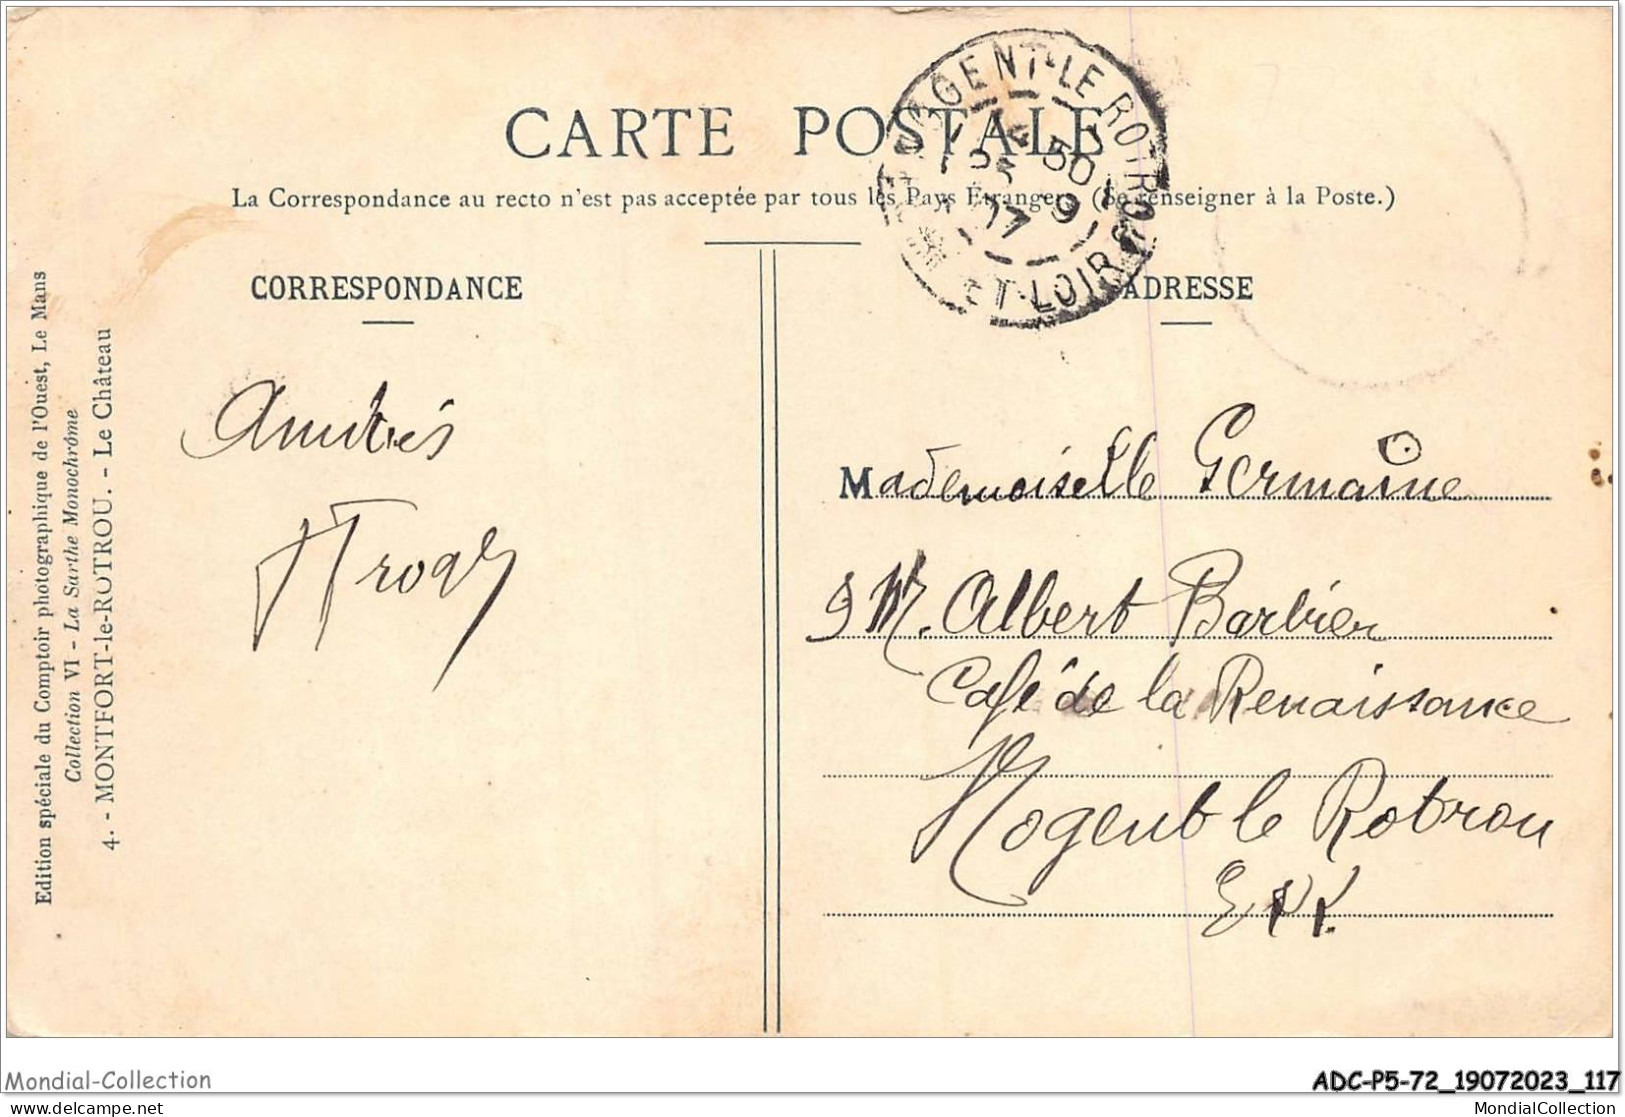 CARTE POSTALE
La Correspondance au recto n'est pas acceptée par tous les Pays Étrangers (Se renseigner à la Poste.)
NOGENT-LE-ROTROU
ET-LOIR
CORRESPONDANCE
ADRESSE
Edition spéciale du Comptoir photographique de l'Ouest, Le Mans
Collection VI - La Sarthe Monochrôme
4. - MONTFORT-le-ROTROU. - Le Château
Amitiés
Mademoiselle Germaine
Mr. Albert Barbier
Café de la Renaissance
Nogent le Rotrou
Mondial-Collection
ADC-P5-72_19072023_117
www.delcampe.net
MondialCollection